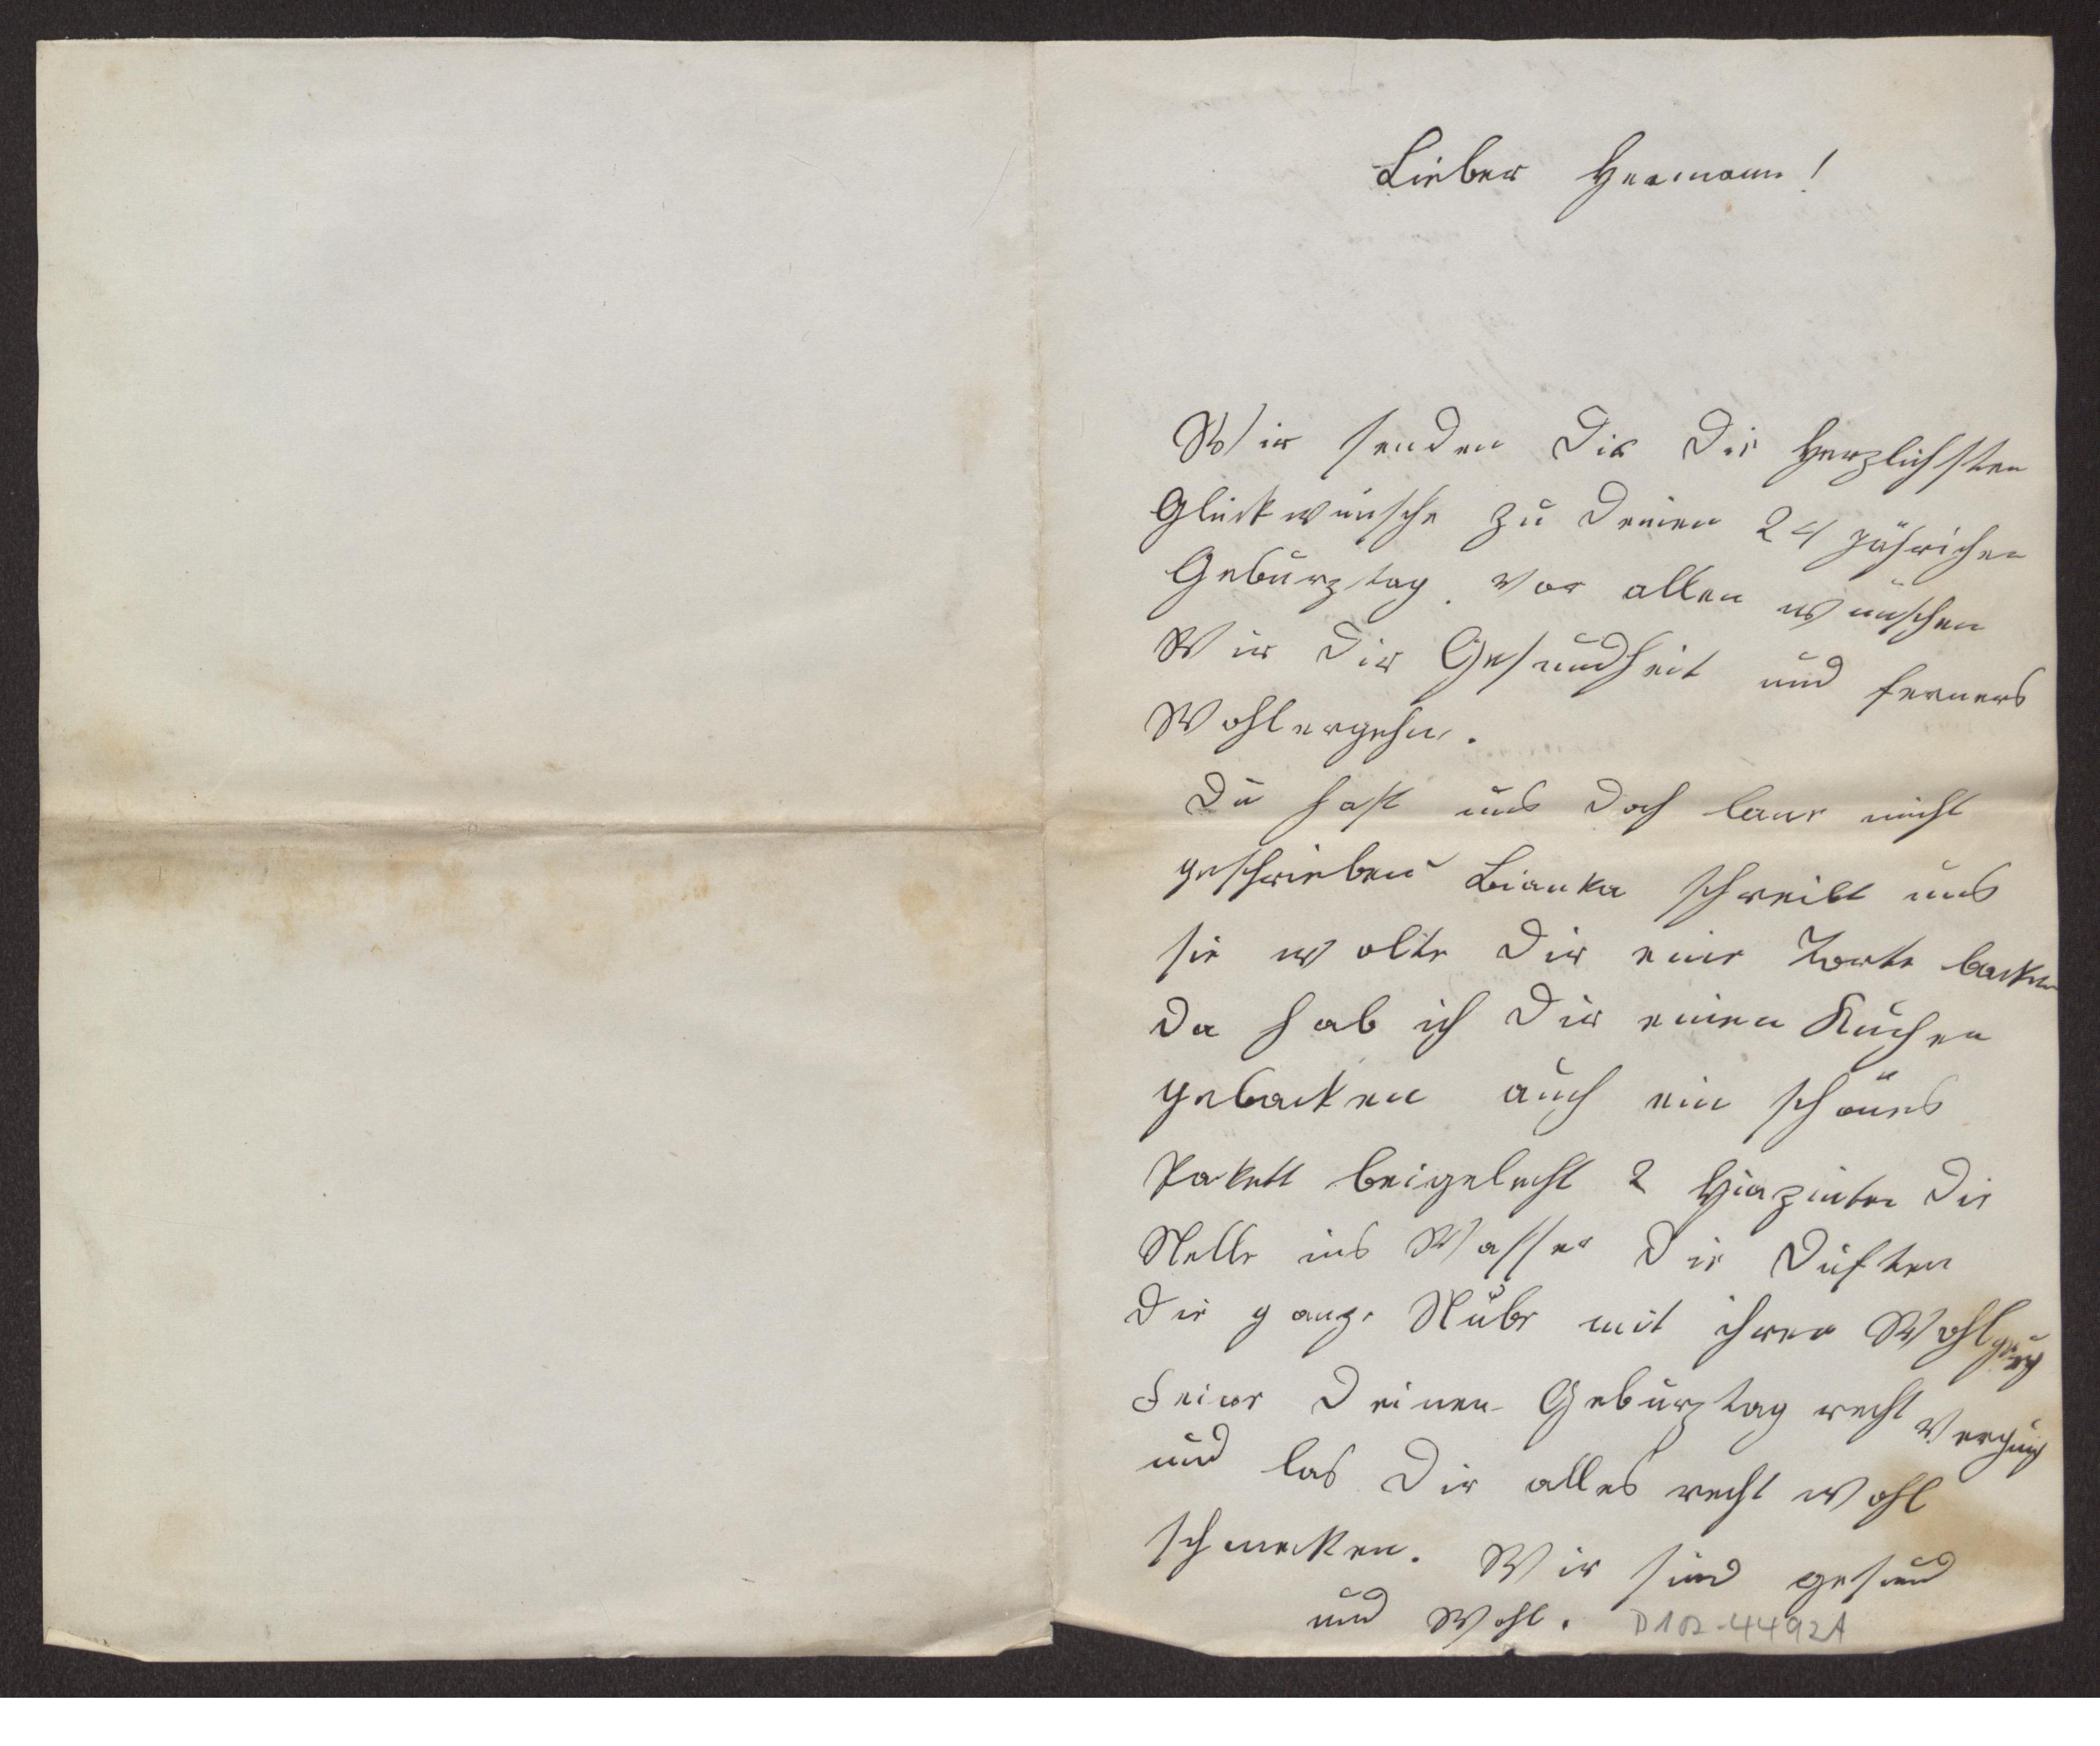 Lieber Hermann!
Wir senden Dir die Herzlichsten
Glückwünsche zu deinen 24 jährichen
Geburztag. vor allen wünschen
Wir dir Gesundheit und ferners
Wohlergehn.
Du hast uns doch lane nicht
geschrieben Bianka schreibt uns
sie wolte dir eine Torte backen
da hab ich dir einen Kuchen
gebacken auch ein schönes
Pakett beigelecht 2 Hiazinten die
Stelle ins Wasser die duften
die ganze Stube mit ihren Wohlgeruch
Feier deinen Geburztag recht Vergnügt
und las dir alles recht wohl
schmecken. Wir sind gesund
und Wohl. D102-4492A